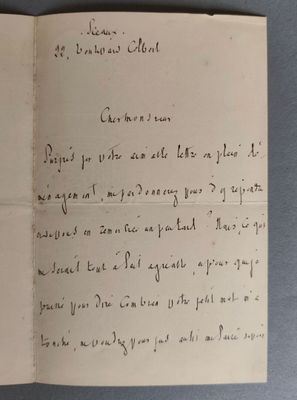 Sceaux.
22, boulevard Colbert
Cher monsieur
Surpris par votre aimable lettre en plein dé-
ménagement, me pardonnerez vous d'y répondre
et vous en remercier ? Mais, ce qui
me serait tout à fait agréable, pour que je
puisse vous dire combien votre petit mot m'a
touché, ne voudrez vous pas me